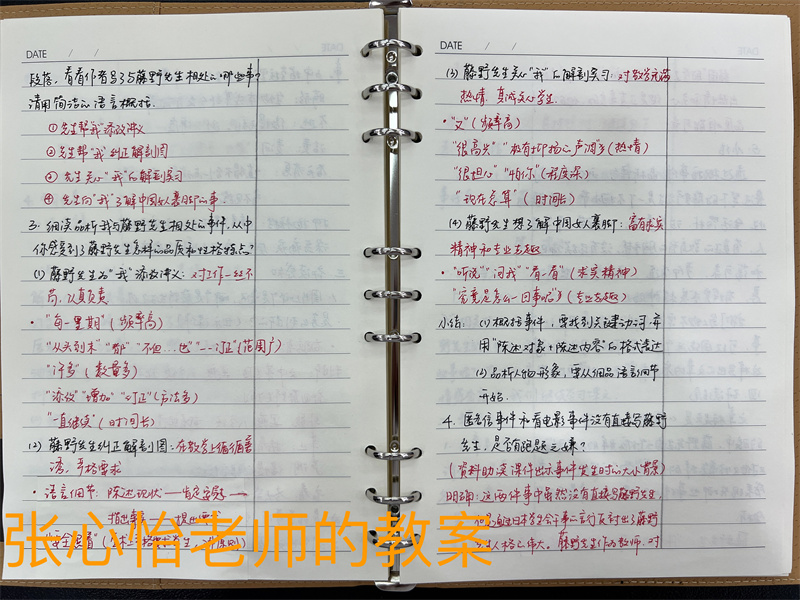 DATE / /
段落，看看作者写了与藤野先生相处的哪些事?
请用简洁的语言概括.
①先生帮“我”添改讲义
②先生帮“我”纠正解剖图
③先生关心“我”的解剖实习
④先生向“我”了解中国女人裹脚的事
3. 细读品析我与藤野先生相处的事件，从中
你感受到了藤野先生怎样的品质和性格特点?
(1) 藤野先生为“我”添改讲义: 对工作一丝不
苟，认真负责
·“每一星期”(频率高)
“从头到末”“都”“不但…也”“一一订正”(范围广)
“许多”(数量多)
“添改”“增加”“订正”(方法多)
“一直继续”(时间长)
(2) 藤野先生纠正解剖图: 在教学上循循善
诱，严格要求
·语言细节: 陈述现状——肯定客观——
指出事
张心怡老师的教案
DATE / /
(3) 藤野先生关心“我”的解剖实习: 对教学充满
热情，真诚关心学生.
·“又”(频率高)
“很高兴”“极有抑扬的声调”(热情)
“很担心”“怕你”(程度深)
“现在总算”(时间长)
(4) 藤野先生想了解中国女人裹脚: 富有求实
精神和专业志趣
·“听说”“问我”“看一看”(求实精神)
“究竟是怎么一回事呢”(专业志趣)
小结: (1) 概括事件，要找到关键动词，并
用“陈述对象+陈述内容”的格式表达
(2) 品析人物形象，要从细品语言细节
开始.
4. 匿名信事件和看电影事件没有直接写藤野
先生，是否有跑题之嫌?
(资料助读: 课件出示事件发生时的大背景)
明确: 这两件事中虽然没有直接写藤野先生，
的人格之伟大。藤野先生作为教师，对